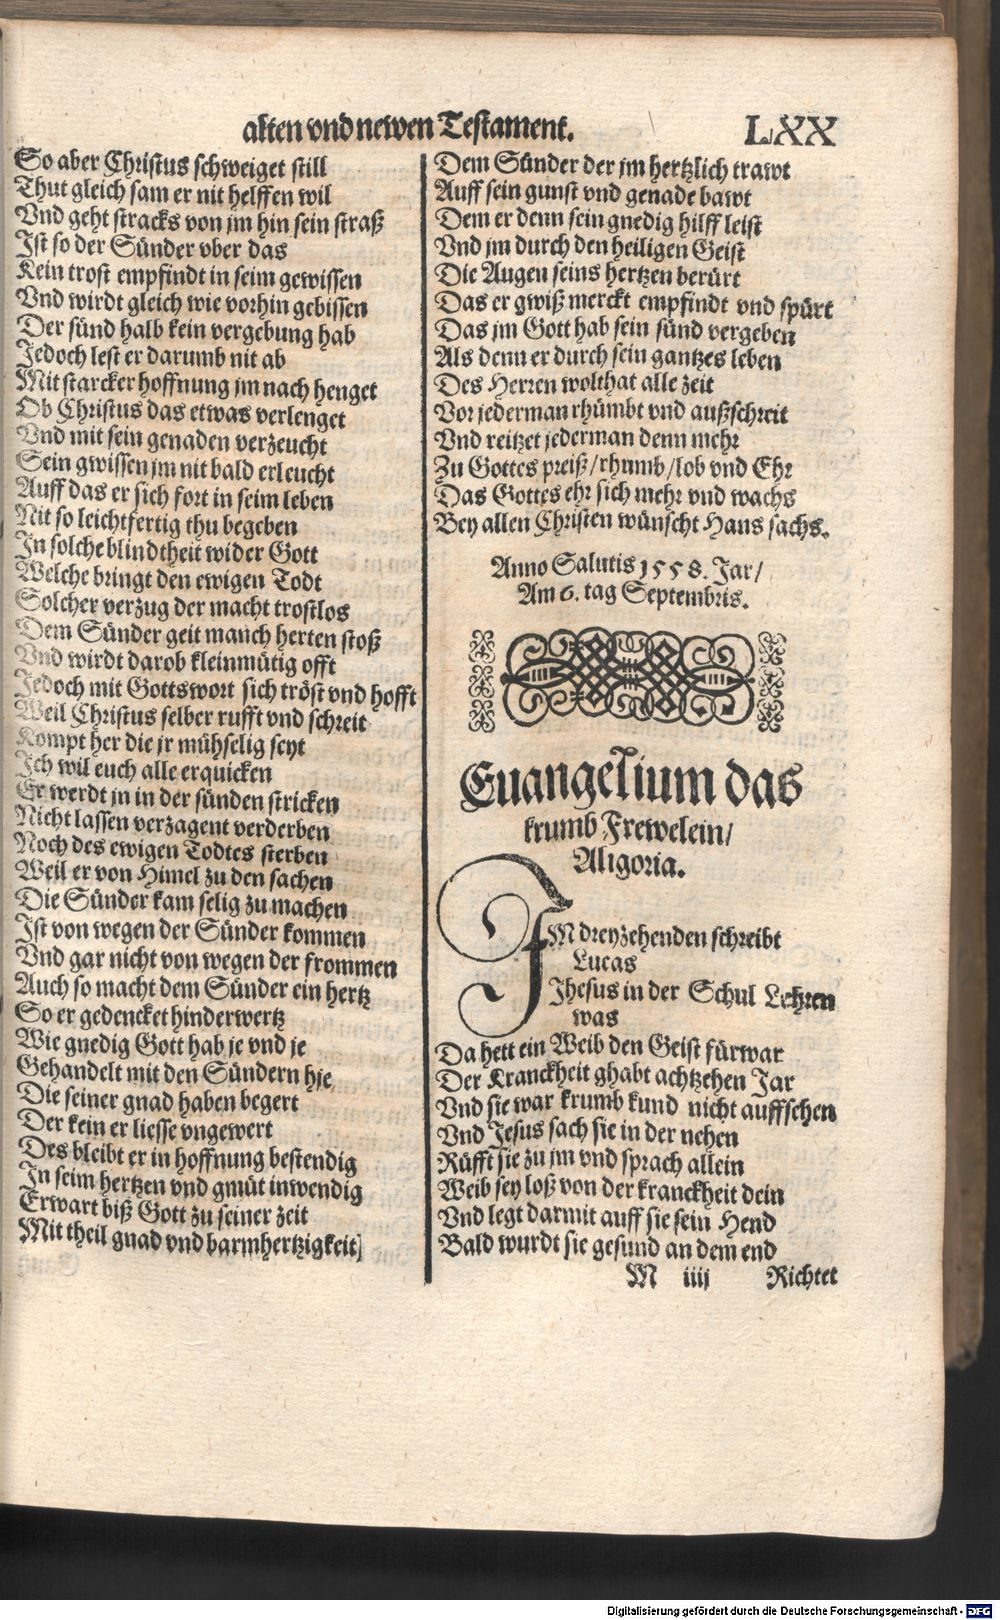 alten vnd newen Testament. LXX
So aber Christus schweiget still
Thut gleich sam er nit helffen wil
Vnd geht stracks von jm hin sein straß
Ist so der Sünder vber das
Kein trost empfindt in seim gewissen
Vnd wirdt gleich wie vorhin gebissen
Der sünd halb kein vergebung hab
Jedoch lest er darumb nit ab
Mit starcker hoffnung jm nach henget
Ob Christus das etwas verlenget
Vnd mit sein genaden verzeucht
Sein gwissen jm nit bald erleucht
Auff das er sich fort in seim leben
Nit so leichtfertig thu begeben
In solche blindtheit wider Gott
Welche bringt den ewigen Todt
Solcher verzug der macht trostlos
Dem Sünder geit manch herten stoß
Vnd wirdt darob kleinmütig offt
Jedoch mit Gottswort sich tröst vnd hofft
Weil Christus selber rufft vnd schreit
Kompt her die jr mühselig seyt
Ich wil euch alle erquicken
Er werdt jn in der sünden stricken
Nicht lassen verzagent verderben
Noch des ewigen Todtes sterben
Weil er von Himel zu den sachen
Die Sünder kam selig zu machen
Ist von wegen der Sünder kommen
Vnd gar nicht von wegen der frommen
Auch so macht dem Sünder ein hertz
So er gedencket hinderwertz
Wie gnedig Gott hab je vnd je
Gehandelt mit den Sündern hje
Die seiner gnad haben begert
Der kein er liesse vngewert
Des bleibt er in hoffnung bestendig
In seim hertzen vnd gmüt inwendig
Erwart biß Gott zu seiner zeit
Mit theil gnad vnd barmhertzigkeit
Dem Sünder der jm hertzlich trawt
Auff sein gunst vnd genade bawt
Dem er denn sein gnedig hilff leist
Vnd jm durch den heiligen Geist
Die Augen seins hertzen berürt
Das er gwiß merckt empfindt vnd spürt
Das jm Gott hab sein sünd vergeben
Als denn er durch sein gantzes leben
Des Herren wolthat alle zeit
Vor jederman rhümbt vnd außschreit
Vnd reitzet jederman denn mehr
Zu Gottes preiß/rhumb/lob vnd Ehr
Das Gottes ehr sich mehr vnd wachs
Bey allen Christen wünscht Hans sachs.
Anno Salutis 1558. Jar/
Am 6. tag Septembris.
Euangelium das
krumb Frewelein/
Aligoria.
IM dreyzehenden schreibt
Lucas
Jhesus in der Schul Lehren
was
Da hett ein Weib den Geist fürwar
Der Kranckheit ghabt achtzehen Jar
Vnd sie war krumb kund nicht auffsehen
Vnd Jesus sach sie in der nehen
Rüfft sie zu jm vnd sprach allein
Weib sey loß von der kranckheit dein
Vnd legt darmit auff sie sein Hend
Bald wurdt sie gesund an dem end
M iiij Richtet
Digitalisierung gefördert durch die Deutsche Forschungsgemeinschaft - DFG